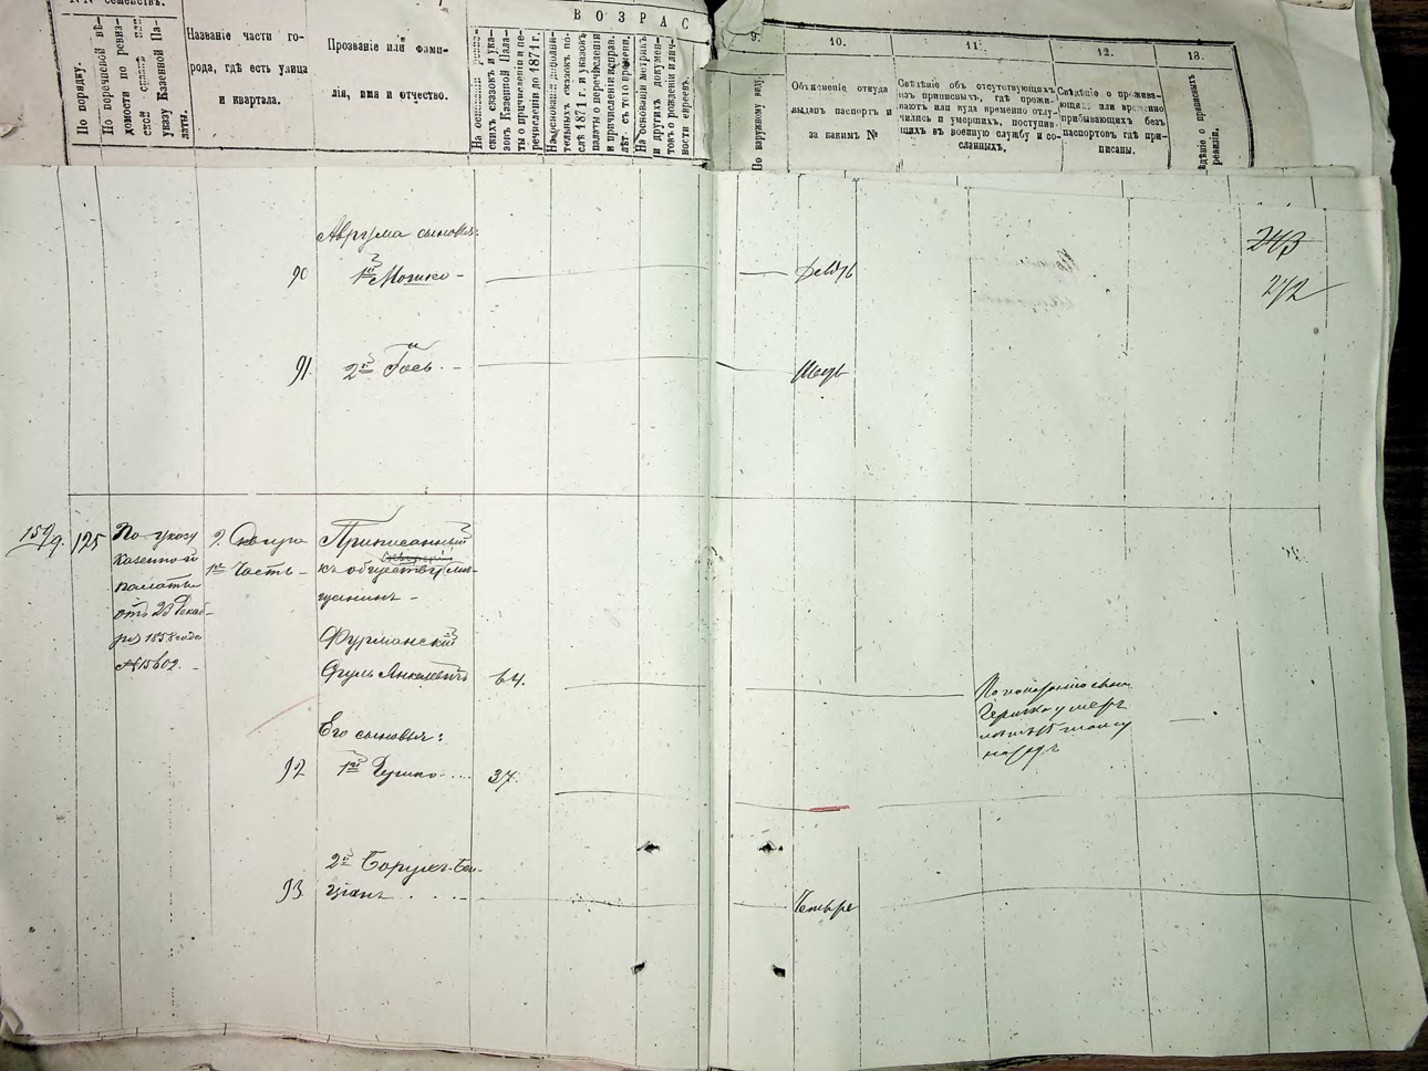 №№ семействъ.
ВОЗРАС
По порядку.
По перечневой вѣ-
домости по ревиз-
ской сказкѣ или
указу Казенной Па-
латы.
Названіе части го-
рода, гдѣ есть улица
и квартала.
Прозваніе или фами-
лія, имя и отчество.
На основаніи ревиз-
скихъ сказокъ и ука-
зовъ Казенной Пала-
ты о причисленіи и пе-
речисленіи до 1871 г.
На основаніи дополни-
тельныхъ сказокъ по-
слѣ 1871 г. и указовъ
палаты о перечисленіи
и причисленіи и справ.
лѣт. съ того времени.
На основаніи метрикъ
и другихъ докумен-
токъ о рожденіи и лич-
ности евреевъ.
9.
По наружному виду.
10.
Объясненіе откуда
выданъ паспортъ и
за какимъ №
11.
Свѣдѣніе объ отсутствующихъ
изъ приписныхъ, гдѣ прожи-
ваютъ или куда временно отлу-
чились и умершихъ, поступив-
щихъ въ военную службу и со-
сланныхъ.
12.
Свѣдѣніе о прожива-
ющихъ или временно
прибывающихъ безъ
паспортовъ гдѣ при-
писаны.
13.
ревизіи.
Аврума сыновья:
243
90
1й Мошко -
девять
242
91.
2й Іось. -
159/9.
125
По указу
казенной
палаты
отъ 23 Декаб-
ря 1858 года
№15602. -
1я Часть -
Приписанный
къ обществу мѣ-
щанинъ -
Фурманскій
Сруль Янкелевичъ
64.
умеръ
тому
назадъ
Его сыновья:
92
1й
37.
2й Борухъ-Бен-
93.
ціонъ . . . . -
Четыре